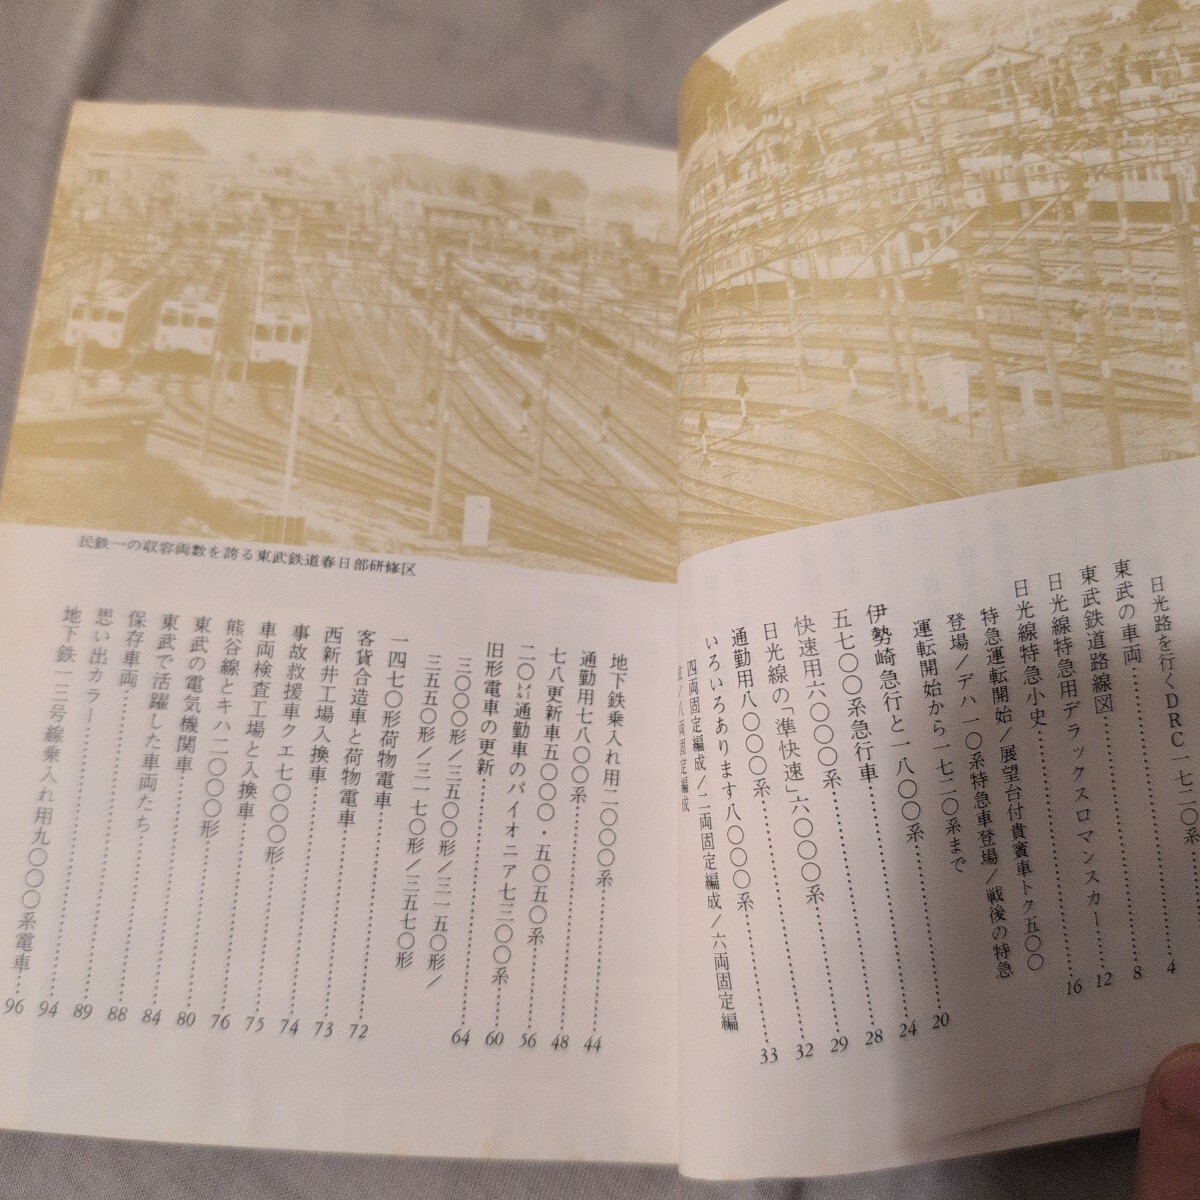 日光路を行くDRC一七二〇系……4
東武の車両……8
東武鉄道路線図……12
日光線特急用デラックスロマンスカー……16
日光線特急小史
特急運転開始/展望台付貴賓車トク五〇〇
登場/デハ一〇系特急車登場/戦後の特急
運転開始から一七二〇系まで……20
伊勢崎急行と一八〇〇系……24
五七〇〇系急行車……28
快速用六〇〇〇系……29
日光線の「準快速」六〇〇〇系……32
通勤用八〇〇〇系……33
いろいろあります八〇〇〇系
四両固定編成/二両固定編成/六両固定編
成/八両固定編成
民鉄一の収容両数を誇る東武鉄道春日部研修区
地下鉄乗入れ用二〇〇〇系……44
通勤用七八〇〇系……48
七八更新車五〇〇〇・五〇五〇系……56
二〇メートル通勤車のパイオニア七三〇〇系……60
旧形電車の更新……64
三〇〇〇形/三五〇〇形/三一五〇形/
三五五〇形/三一七〇形/三五七〇形
一四七〇形荷物電車
客貨合造車と荷物電車……72
西新井工場入換車……73
事故救援車クエ七〇〇〇形……74
車両検査工場と入換車……75
熊谷線とキハ二〇〇〇形……76
東武の電気機関車……80
東武で活躍した車両たち……84
保存車両……88
思い出カラー……89
地下鉄一三号線乗入れ用九〇〇〇系電車……94
96